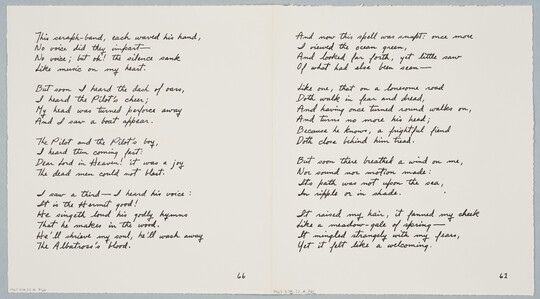 This seraph-band, each waved his hand,
No voice did they impart—
No voice; but oh! the silence sank
Like music on my heart.
But soon I heard the dash of oars,
I heard the Pilot's cheer;
My head was turned perforce away
And I saw a boat appear.
The Pilot and the Pilot's boy,
I heard them coming fast:
Dear Lord in Heaven! it was a joy
The dead men could not blast.
I saw a third—I heard his voice:
It is the Hermit good!
He singeth loud his godly hymns
That he makes in the wood.
He'll shrieve my soul, he'll wash away
The Albatross's blood.
66
And now this spell was snapt: once more
I viewed the ocean green,
And looked far forth, yet little saw
Of what had else been seen—
Like one, that on a lonesome road
Doth walk in fear and dread,
And having once turned round walks on,
And turns no more his head;
Because he knows, a frightful fiend
Doth close behind him tread.
But soon there breathed a wind on me,
Nor sound nor motion made:
Its path was not upon the sea,
In ripple or in shade.
It raised my hair, it fanned my cheek
Like a meadow-gale of spring—
It mingled strangely with my fears,
Yet it felt like a welcoming.